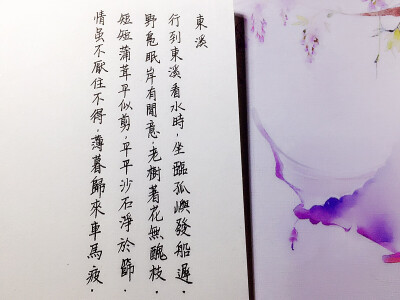 東溪
行到東溪看水時，坐臨孤嶼發船遲．
野凫眠岸有閒意．老樹著花無醜枝．
短短蒲茸平似剪，平平沙石淨於篩．
情虽不厭住不得．薄暮歸來車馬疲．